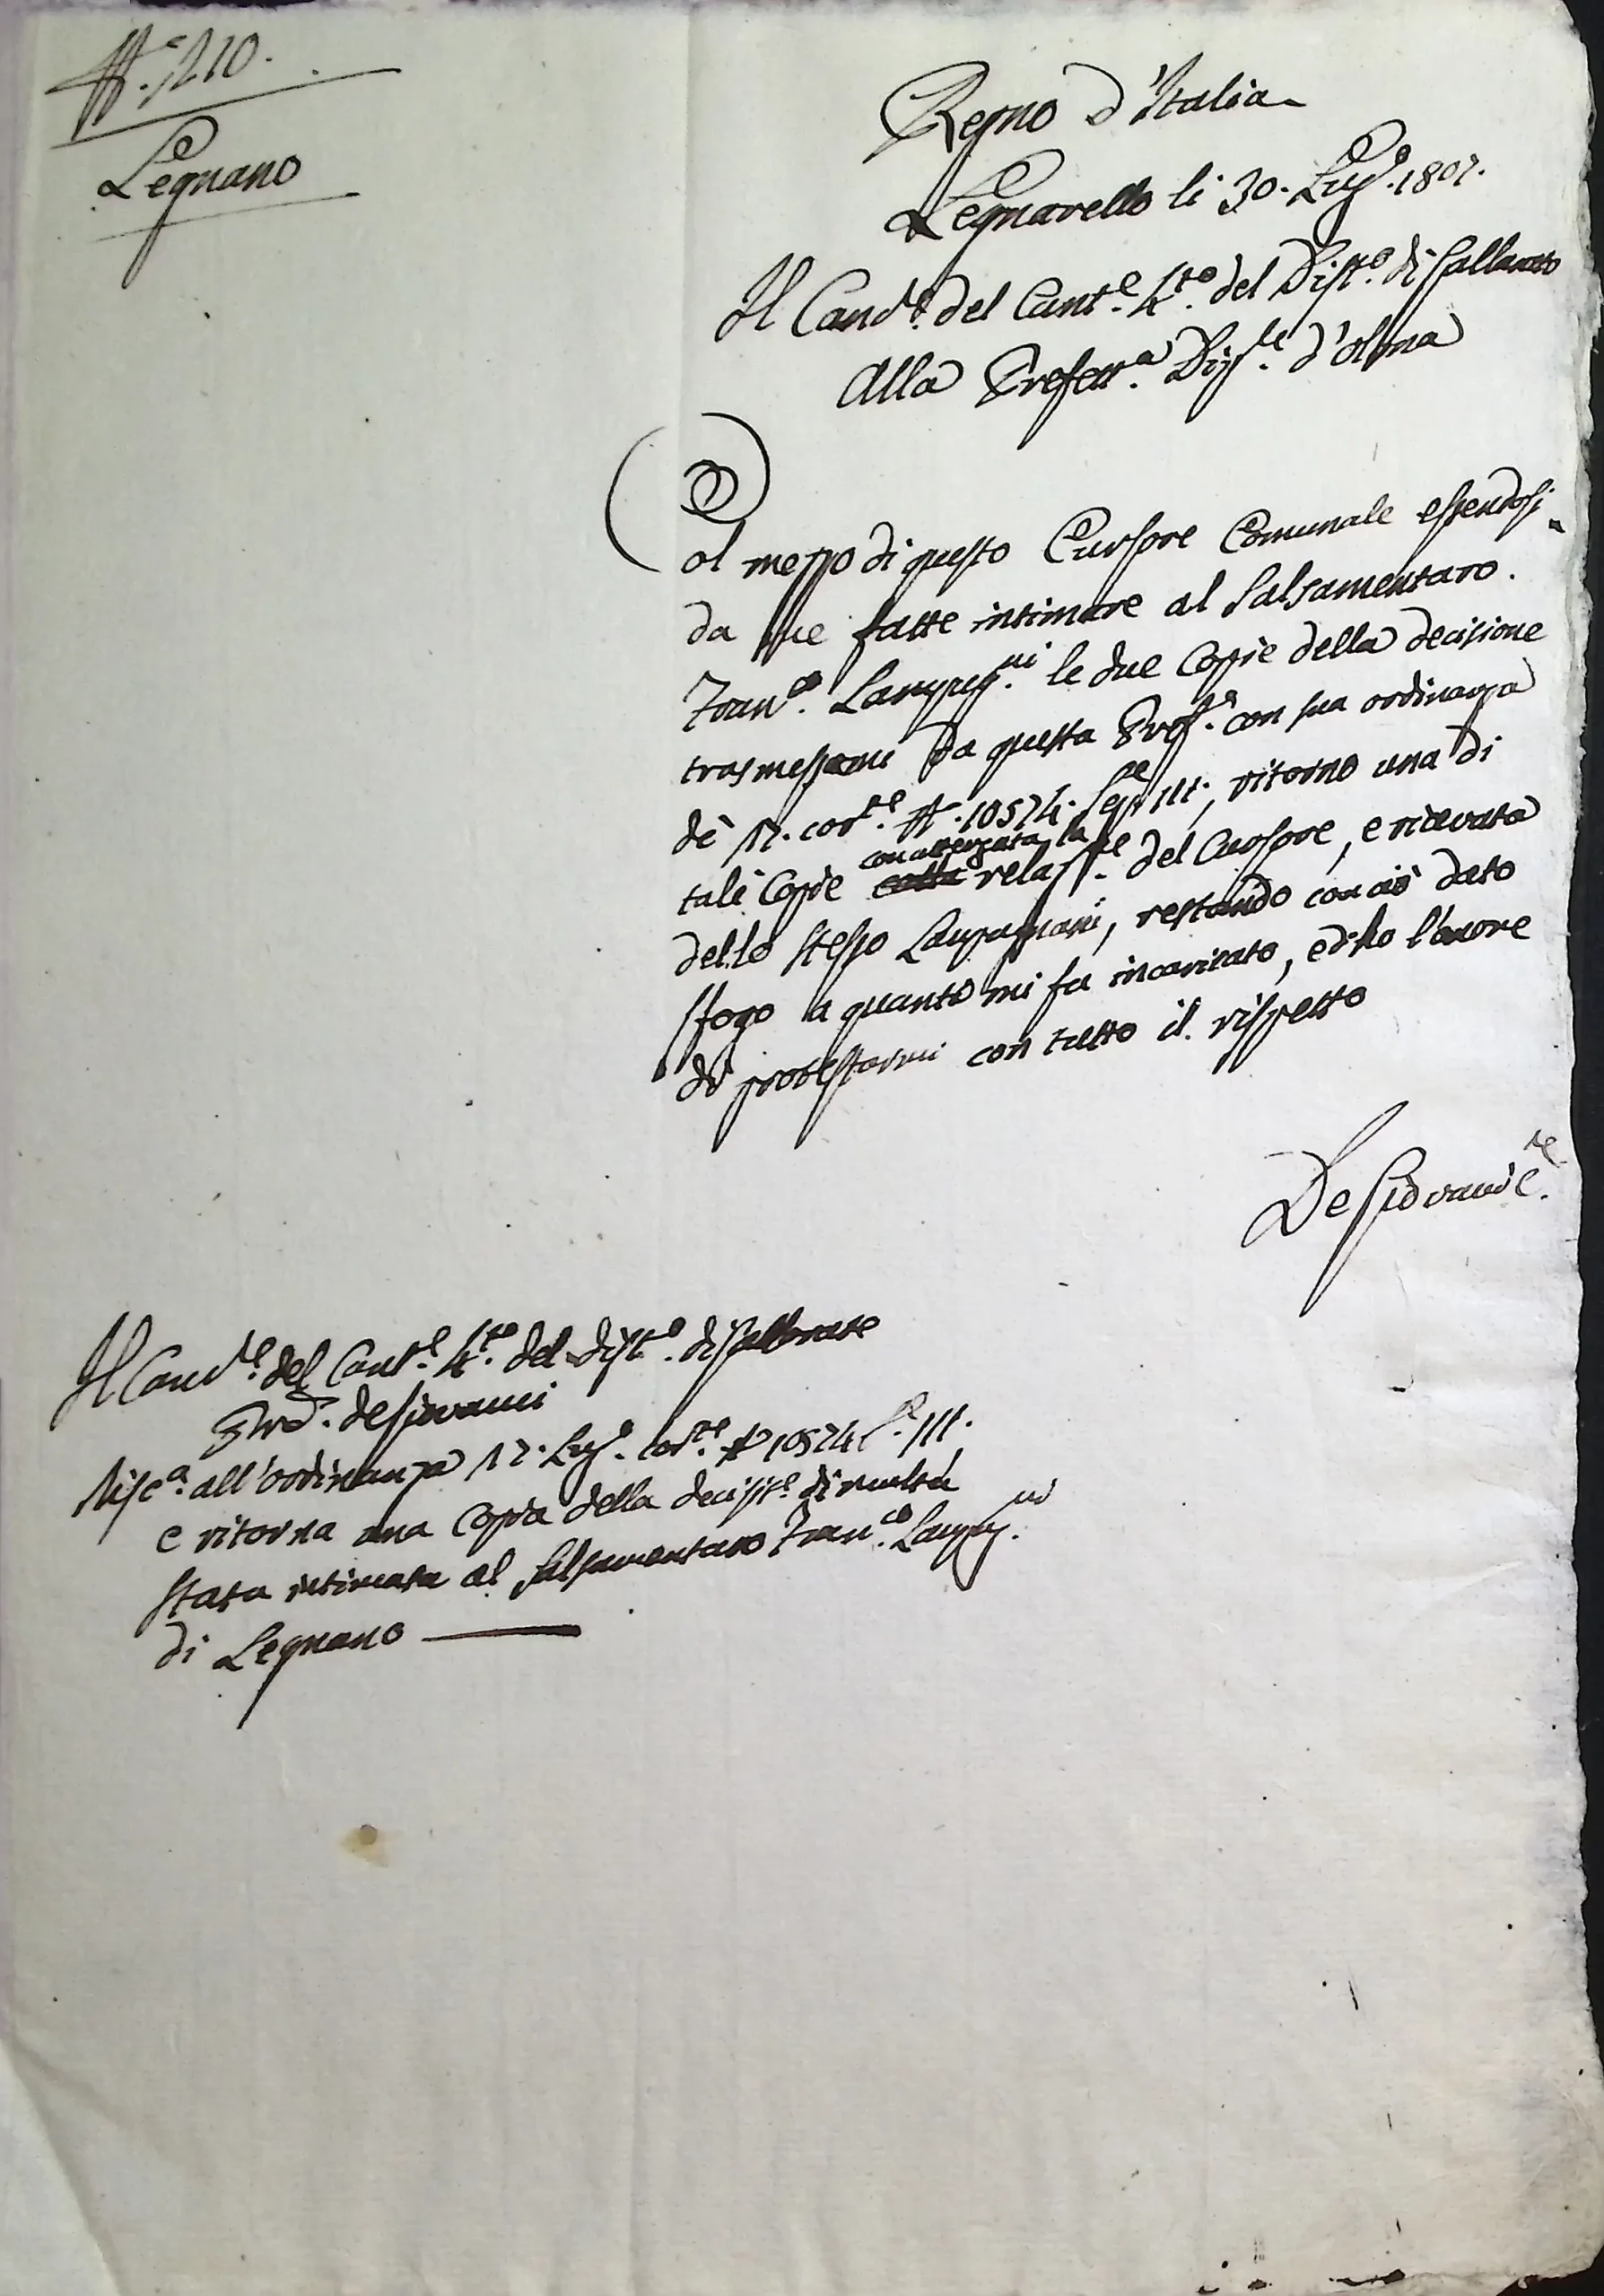 N.° 210.
Legnano
Regno d'Italia
Legnarello li 30. Lug.° 1807.
Il Canc.e del Cant.e 4.to del Dist.o di Gallarate
Alla Prefett.a Dip.le d'Olona
Col messo di questo Cursore Comunale essendosi
da me fatte intimare al Salsamentaro
Fran.co Lampug.ni le due Copie della decisione
trasmessami da questa Pref.a con sua ordinanza
dè 17. cor.te N. 10574. Sez.e III., ritorno una di
tali Copie con avergata la relaz.ne del Cursore, e ricevuta
dello stesso Lampugnani, restando con ciò dato
sfogo a quanto mi fu incaricato, ed ho l'onore
di protestarmi con tutto il rispetto
De Giovanni C.re
Il Canc.e del Cant.e 4.to del Dist.o di Gallarate
de Giovanni
Risc.a all'ordinanza 17. Lug.o cor.te N 10574 S.e III.
e ritorna una Copia della decis.e di multa
stata intimata al Salsamentaro Fran.co Lampug.ni
di Legnano